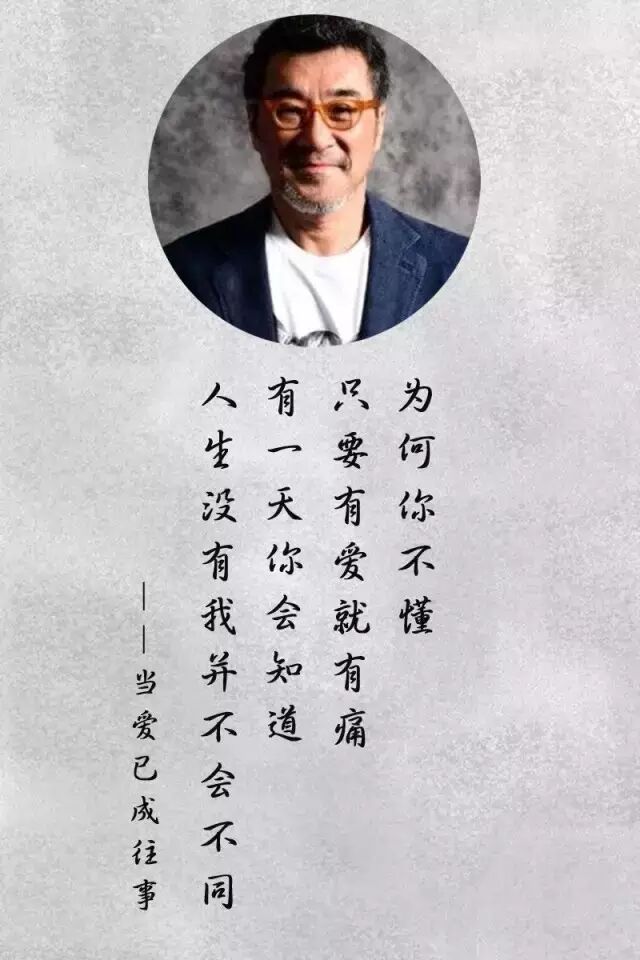 为何你不懂
只要有爱就有痛
有一天你会知道
人生没有我并不会不同
——当爱已成往事